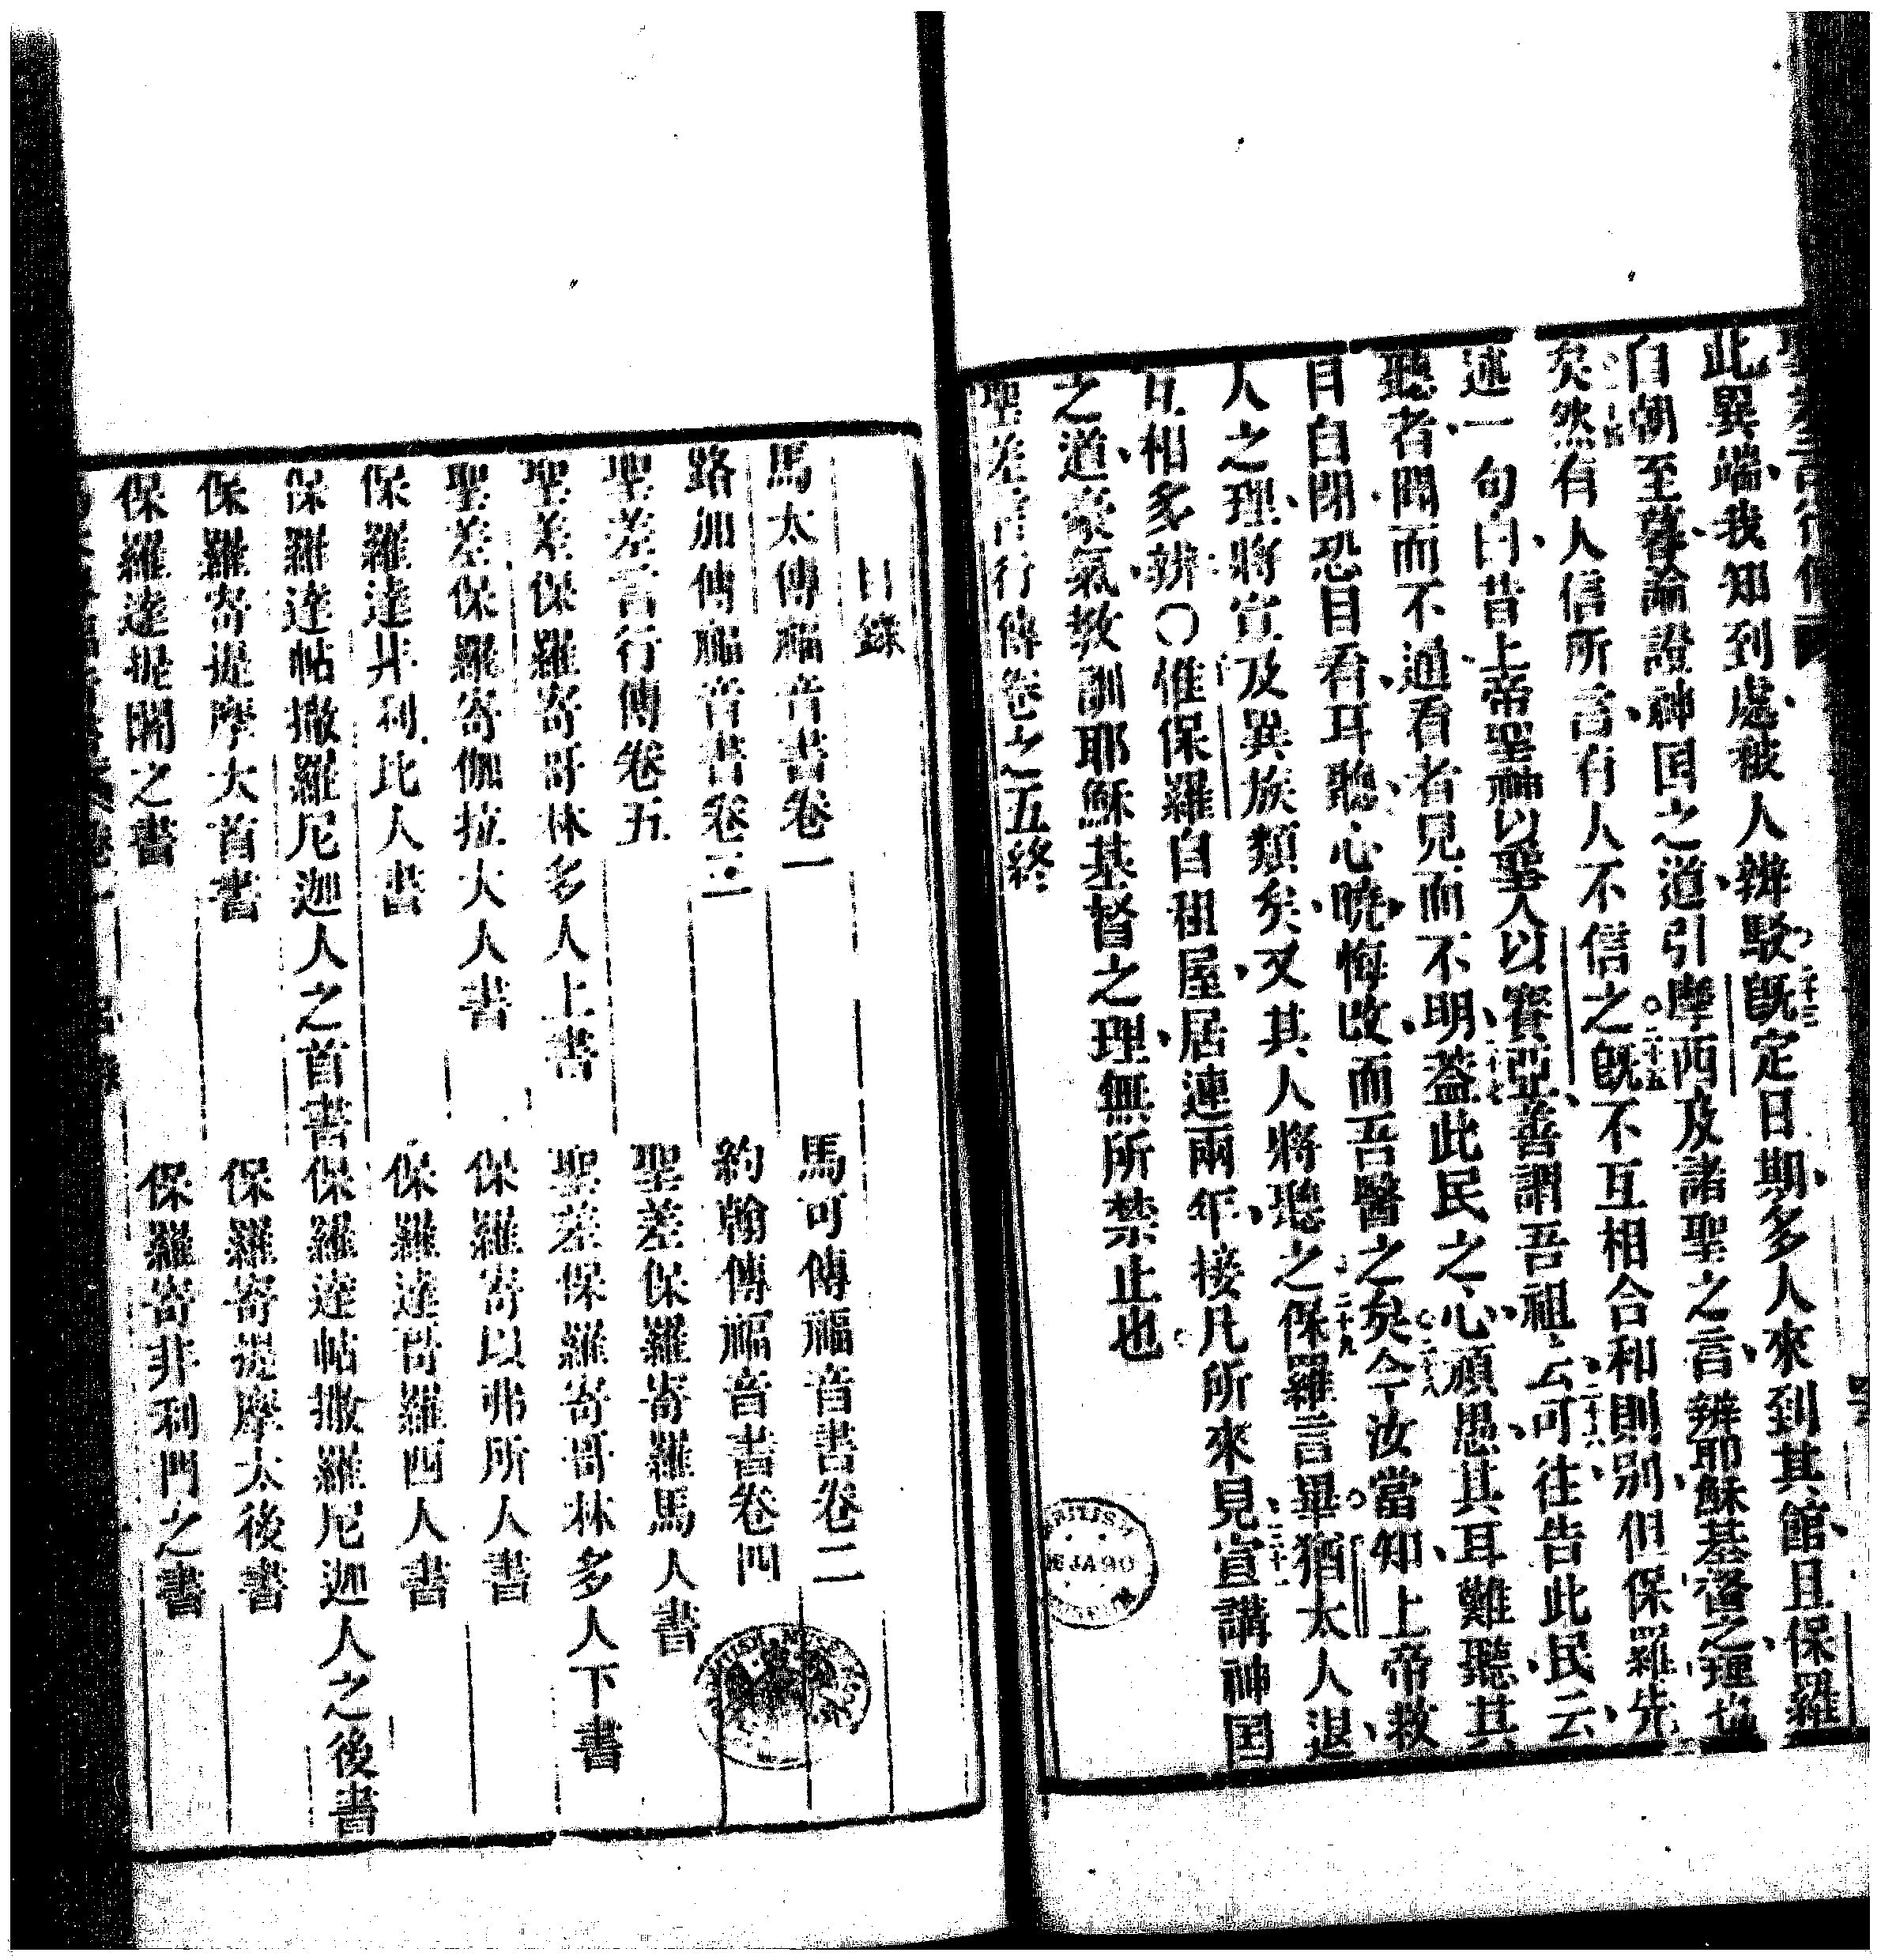 此異端我知到處被人辨駁既定日期多人來到其館且保羅
二十三
自朝至暮論證神国之道引摩西及諸聖之言辨耶穌基督之理也
矣然有人信所言有人不信之既不互相合和則别但保羅先
二十五
述一句曰昔上帝聖神以聖人以賽亞善謂吾祖云可往告此民云
二十六
聽者聞而不通看者見而不明葢此民之心頑愚其耳難聽其
二十七
目自閉恐目看耳聽心曉悔改而吾醫之矣今汝當知上帝救
二十八
人之理將宣及異族類矣又其人將聽之保羅言畢猶太人退
二十九
互相多辨〇惟保羅自租屋居連兩年接凡所來見宣講神国
三十一
之道豪氣教訓耶穌基督之理無所禁止也
聖差言行傳卷之五終
BRITISH
JA90
目錄
馬太傳福音書卷一
馬可傳福音書卷二
路加傳福音書卷三
約翰傳福音書卷四
聖差言行傳卷五
聖差保羅寄羅馬人書
聖差保羅寄哥林多人上書
聖差保羅寄哥林多人下書
聖差保羅寄伽拉大人書
保羅寄以弗所人書
保羅達非利比人書
保羅達哥羅西人書
保羅達帖撒羅尼迦人之首書
保羅達帖撒羅尼迦人之後書
保羅寄提摩太首書
保羅寄提摩太後書
保羅達提闍之書
保羅寄非利門之書